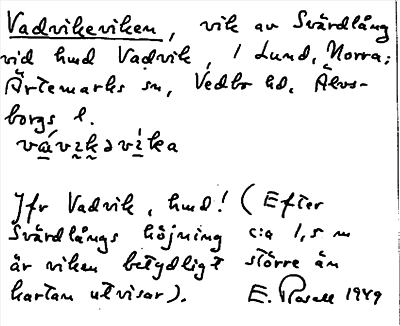 Vadvikeviken, vik av Svärdlång
vid hmd Vadvik, i Lund, Norra;
Ärtemarks sn, Vedbo hd, Älvs-
borgs l.
Jfr Vadvik, hmd! (Efter
Svärdlångs höjning c:a 1,5 m
är viken betydligt större än
kartan utvisar). E. Rosell 1949